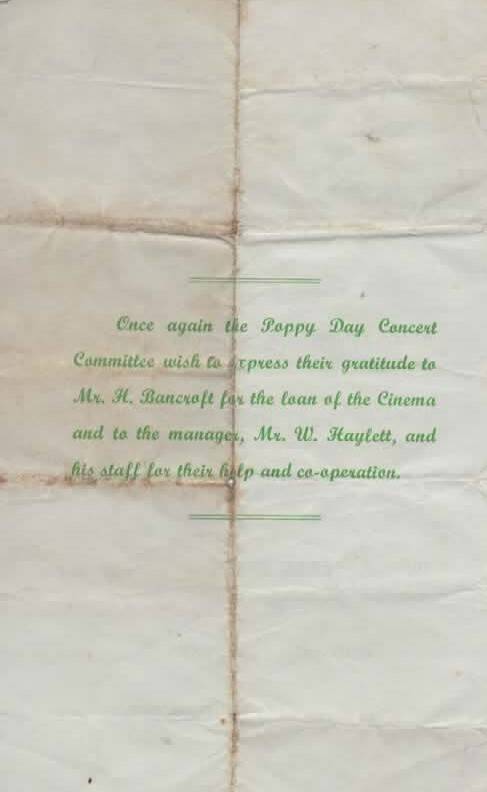 Once again the Poppy Day Concert
Committee wish to express their gratitude to
Mr. H. Bancroft for the loan of the Cinema
and to the manager, Mr. W. Haylett, and
his staff for their help and co-operation.